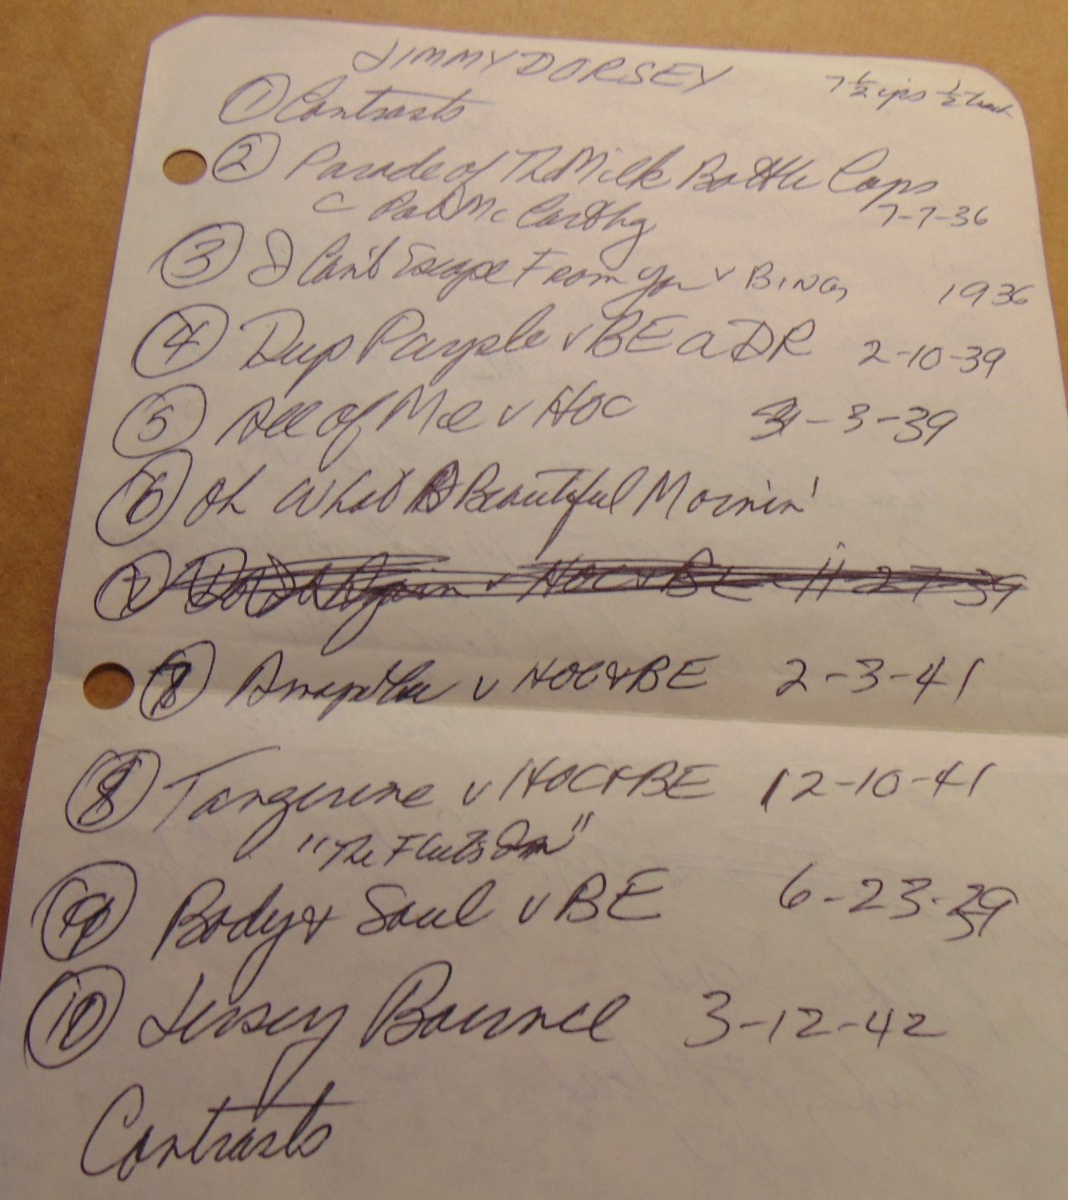 JIMMY DORSEY
7 1/2 ips 1/2 track
① Contrasts
② Parade of The Milk Bottle Caps
C Pat McCarthy 7-7-36
③ I Can't Escape From You v BING 1936
④ Deep Purple v BE a DR 2-10-39
⑤ All of Me v HOC -3-39
⑥ Oh What A Beautiful Mornin'
⑦ Do It Again v HOC & BE 11-27-39
Amapola v HOC & BE 2-3-41
⑧ Tangerine v HOC & BE 12-10-41
"The Fleet's In"
⑨ Body & Soul v BE 6-23-39
⑩ Jersey Bounce 3-12-42
Contrasts